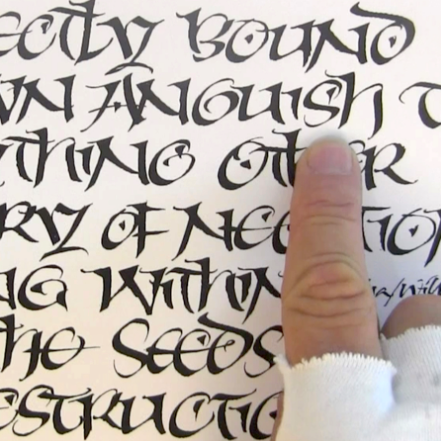 ECTLY BOUND
WN ANGUISH
THING OTHER
RY OF NEG TION
NG WITHIN
THE SEEDS
ESTRUCTIO